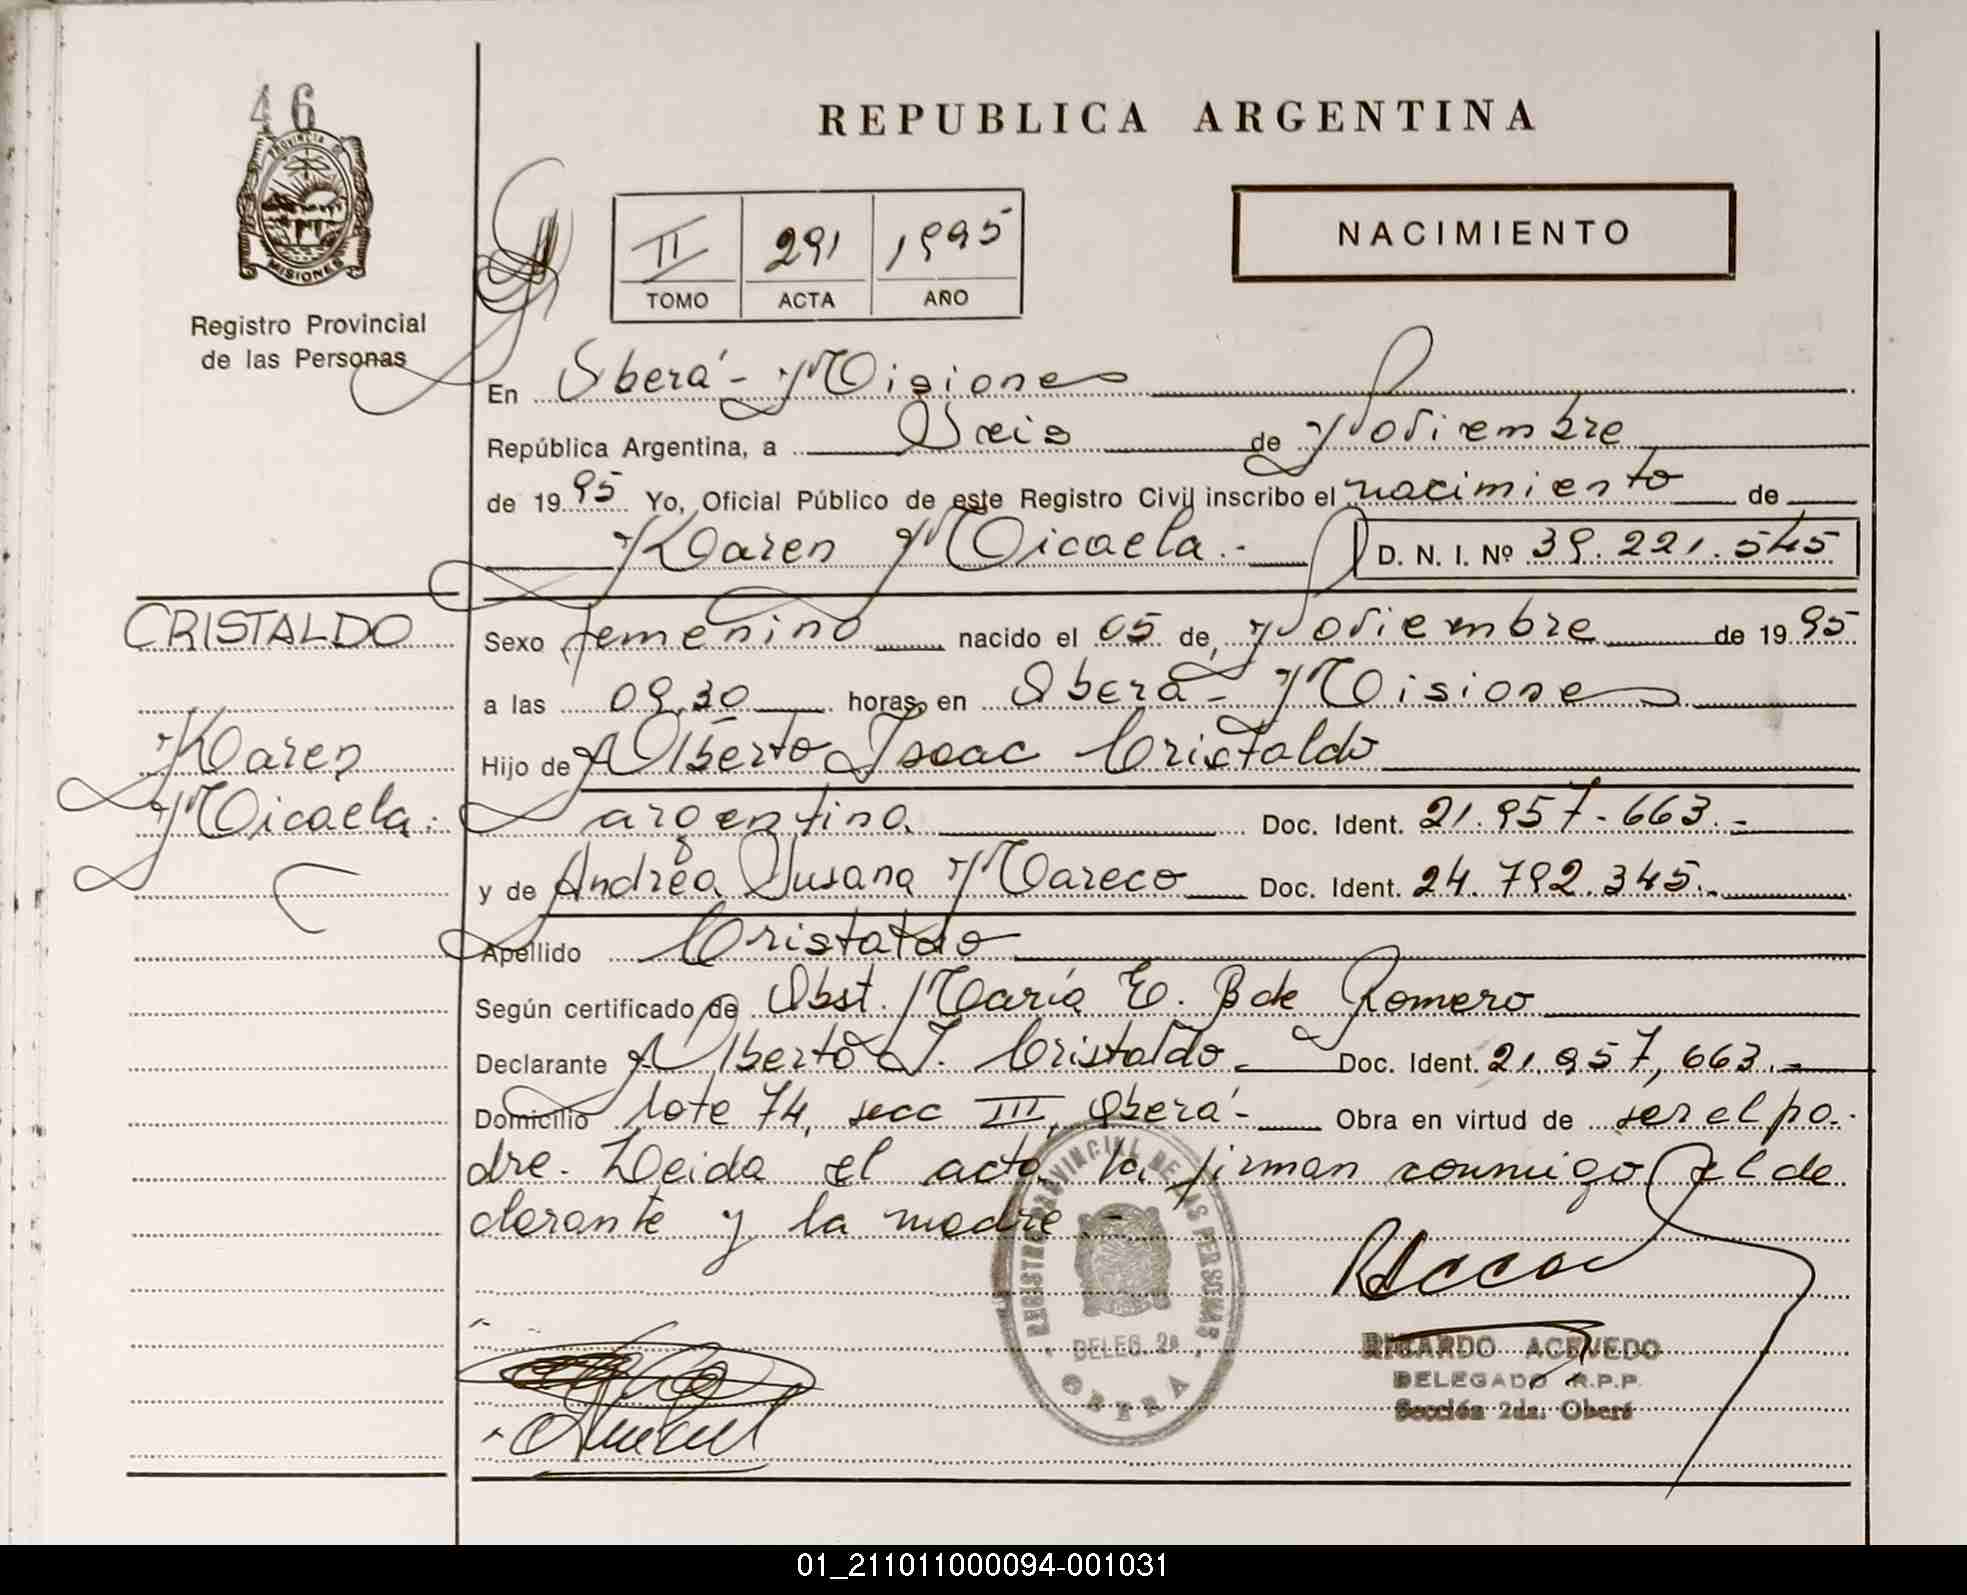 46
PROVINCIA DE
MISIONES
Registro Provincial
de las Personas
REPUBLICA ARGENTINA
II 291 1995
TOMO ACTA AÑO
NACIMIENTO
En Oberá - Misiones
República Argentina, a Seis de Noviembre
de 1995 Yo, Oficial Público de este Registro Civil inscribo el nacimiento de
Karen Micaela.- D. N. I. Nº 39.221.545
CRISTALDO
Karen
Micaela.
Sexo femenino nacido el 05 de Noviembre de 1995
a las 09,30 horas, en Oberá - Misiones
Hijo de Alberto Isaac Cristaldo
argentino. Doc. Ident. 21.957.663.-
y de Andrea Susana Mareco Doc. Ident. 24.792.345.-
Apellido Cristaldo
Según certificado de Obst. María E. B de Romero
Declarante Alberto I. Cristaldo.- Doc. Ident. 21,957,663.-
Domicilio lote 74, secc III, Oberá- Obra en virtud de ser el pa-
dre. Leida el acta la firman conmigo el de
clarante y la madre.-
REGISTRO PROVINCIAL DE LAS PERSONAS
DELEG. 2a
OBERA
RICARDO ACEVEDO
DELEGADO R.P.P.
Sección 2da. Oberá
01_211011000094-001031